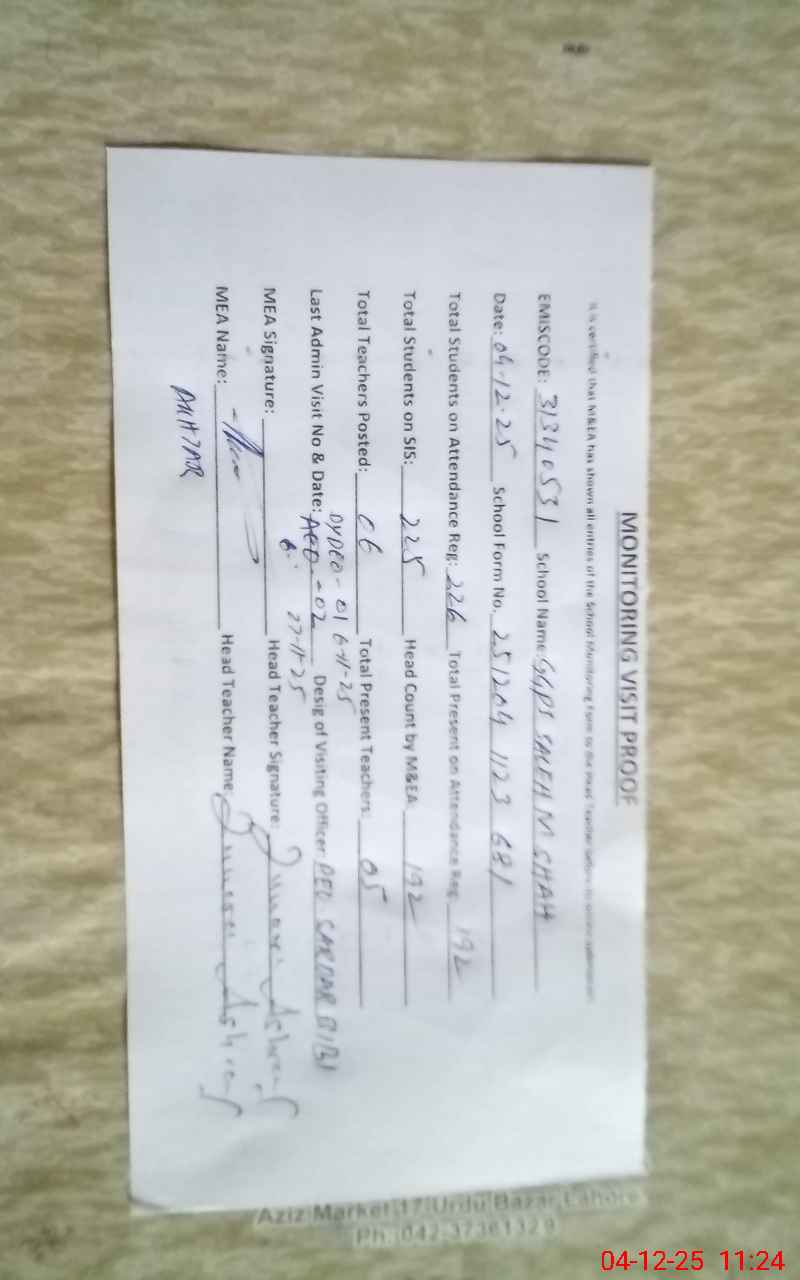 MONITORING VISIT PROOF
It is certified that M&EA has shown all entries of the School Monitoring Form to the Head Teacher before its online submission
EMISCODE: 31340531 School Name GGPS SALEH M SHAH
Date: 04-12-25 School Form No. 251204 1123 681
Total Students on Attendance Reg: 226 Total Present on Attendance Reg: 192
Total Students on SIS: 225 Head Count by M&EA 192
Total Teachers Posted: 06 Total Present Teachers: 05
DYDEO-01 6-11-25
Last Admin Visit No & Date: AEO-02 Desig of Visiting Officer: SARDAR BIBI
27-11-25
MEA Signature: Head Teacher Signature:
MEA Name: Head Teacher Name:
Aziz Market 17-Urdu Bazar, Lahore
Ph: 042-37361329
04-12-25 11:24